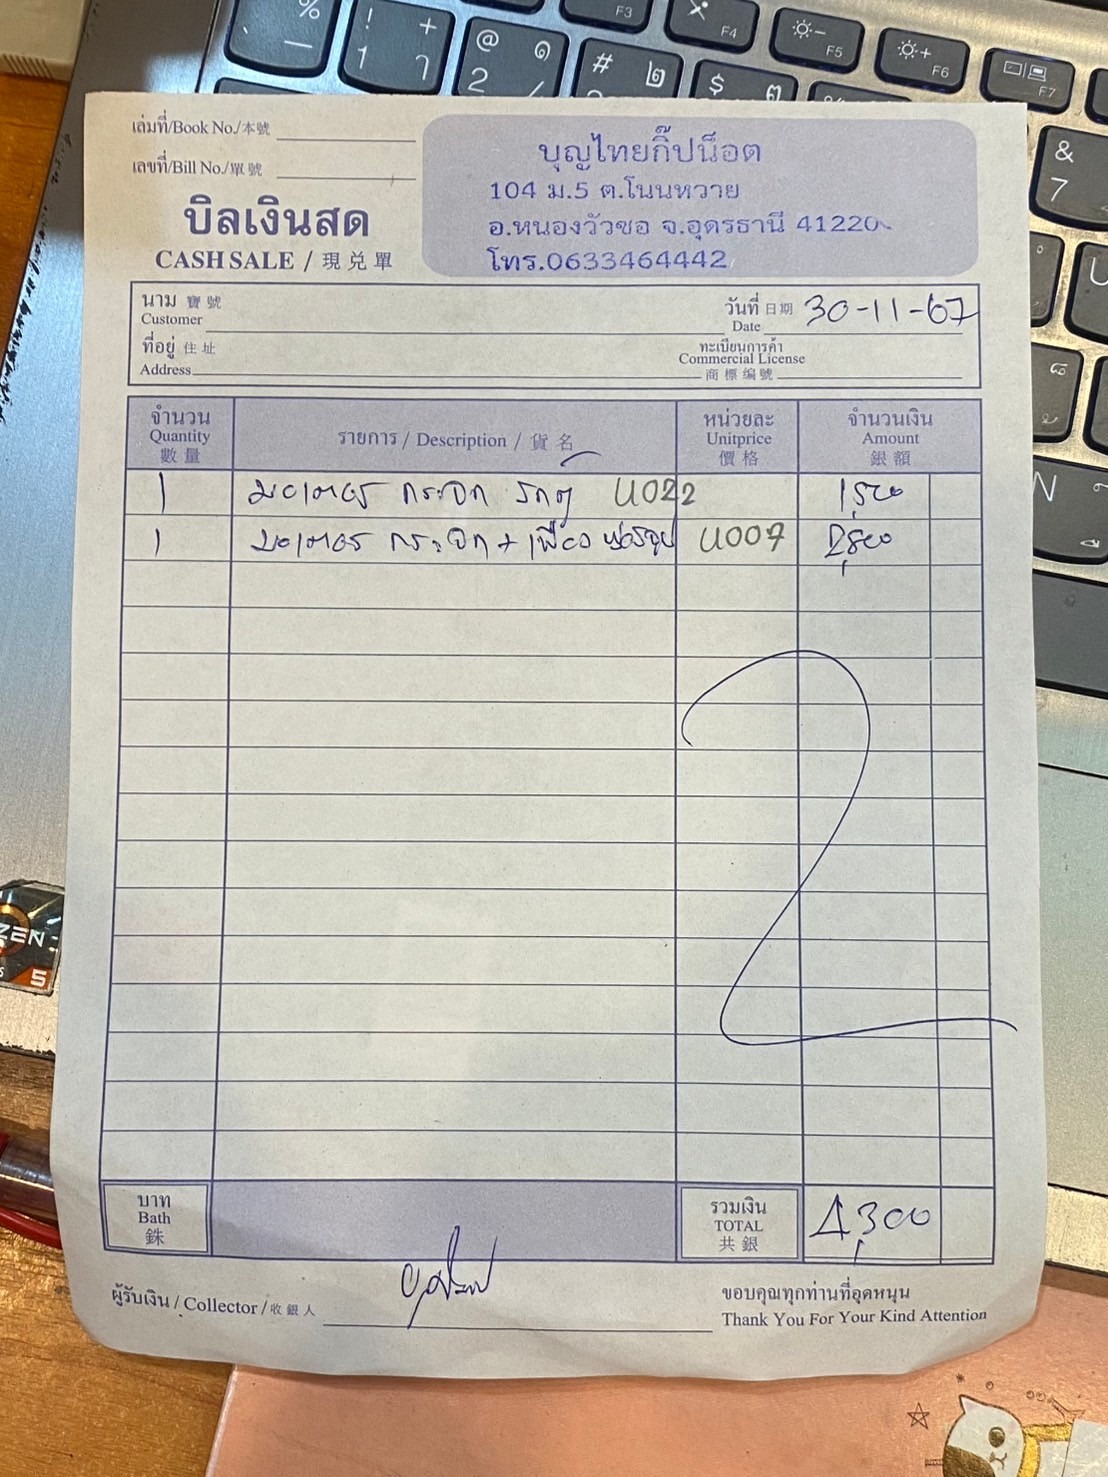 % F3 F4 F5 F6 F7
! + 1 ๅ @ ๑ 2 / # ๒ $ ๓
& 7
N
ZEN
5
เล่มที่/Book No./本號
เลขที่/Bill No./單號
บิลเงินสด
CASH SALE / 現兑單
บุญไทยกิ๊ปน็อต
104 ม.5 ต.โนนหวาย
อ.หนองวัวซอ จ.อุดรธานี 41220
โทร.0633464442
นาม 寶號
Customer
วันที่ 日期 30-11-67
Date
ที่อยู่ 住址
Address
ทะเบียนการค้า
Commercial License
商標編號
จำนวน
Quantity
數量
รายการ / Description / 貨名
หน่วยละ
Unitprice
價格
จำนวนเงิน
Amount
銀額
1 มอเตอร์ กระจก U022 1,500
1 มอเตอร์ กระจก + เฟือง U007 2,800
2
บาท
Bath
銖
รวมเงิน
TOTAL
共銀
4,300
ผู้รับเงิน / Collector / 收銀人
ขอบคุณทุกท่านที่อุดหนุน
Thank You For Your Kind Attention